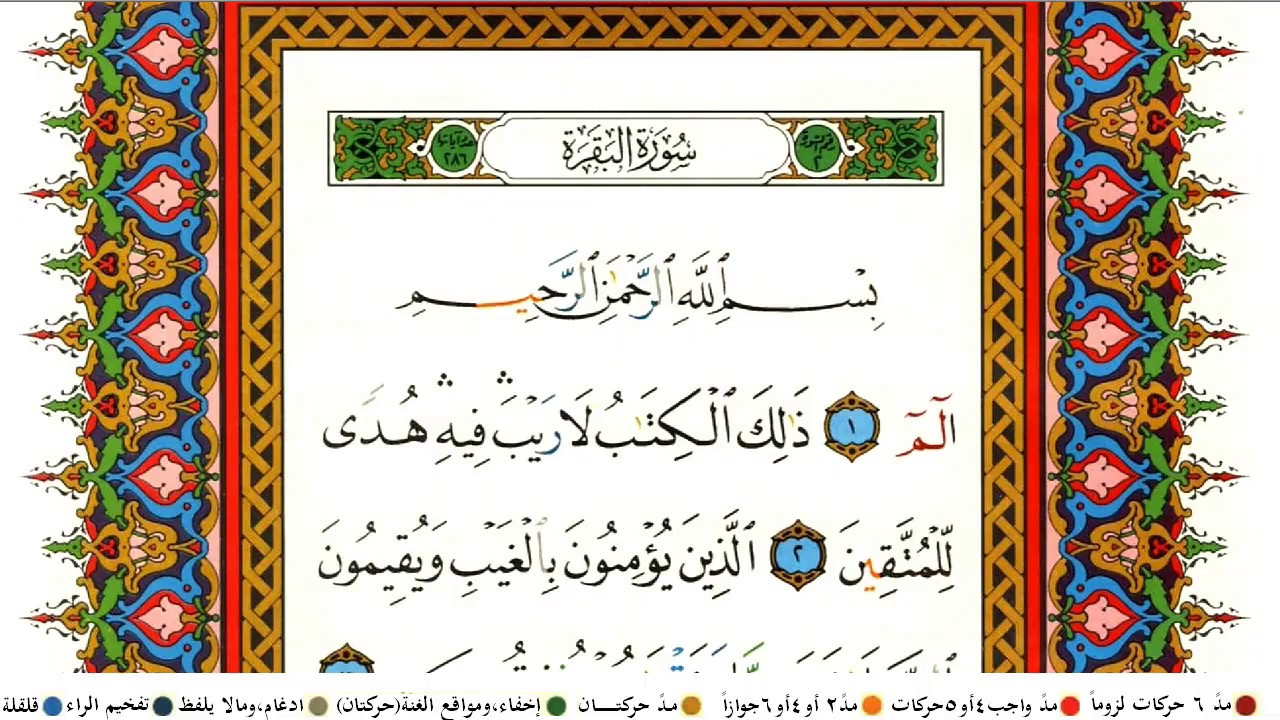 رقم السورة ٢ سُورَةُ البَقَرَةِ عدد آياتها ٢٨٦
بِسْمِ ٱللَّهِ ٱلرَّحْمَٰنِ ٱلرَّحِيمِ
الٓمٓ ١ ذَٰلِكَ ٱلْكِتَٰبُ لَا رَيْبَ ۛ فِيهِ ۛ هُدًى
لِّلْمُتَّقِينَ ٢ ٱلَّذِينَ يُؤْمِنُونَ بِٱلْغَيْبِ وَيُقِيمُونَ
مدّ ٦ حركات لزوماً مدّ واجب ٤ أو ٥ حركات مدّ ٢ أو ٤ أو ٦ جوازاً مـدّ حركتـــان إخفاء، ومواقع الغنة (حركتان) ادغام، ومالا يلفظ تفخيم الراء قلقلة